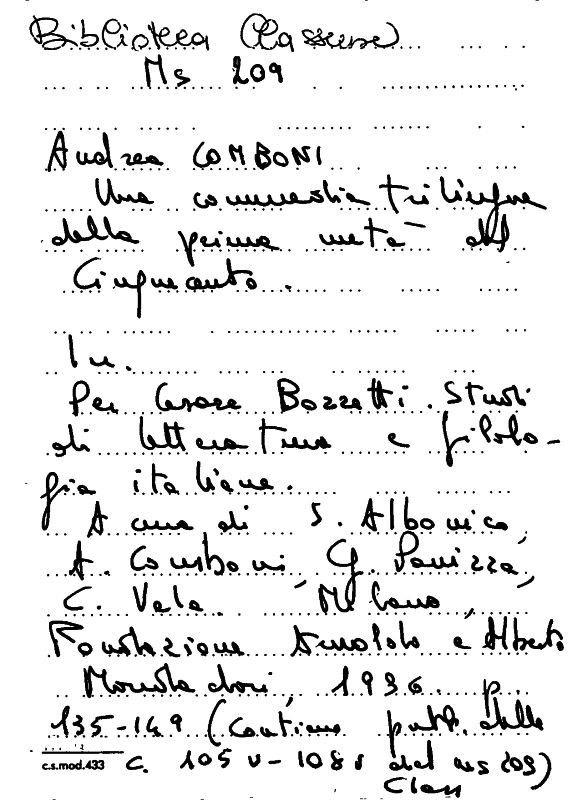 Biblioteca Classense
Ms 209
Andrea COMBONI
Una commedia trilingue
della prima metà del
Cinquecento.
In.
Per Cesare Bozzetti. Studi
di letteratura e filolo-
gia italiana.
A cura di S. Albonico,
A. Comboni, G. Panizza,
C. Vela. Milano,
Fondazione Arnoldo e Alberto
Mondadori, 1996. p.
135-149 (Contiene pubbl. delle
c.s.mod.433 c. 105v-108r del ms 209)
Class